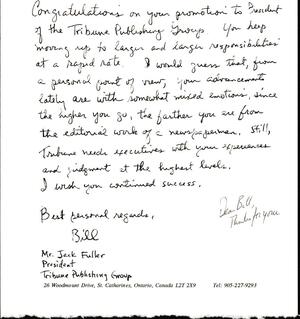 Congratulations on your promotion to President
of the Tribune Publishing Group. You keep
moving up to larger and larger responsibilities
at a rapid rate. I would guess that, from
a personal point of view, your advancements
lately are with somewhat mixed emotions, since
the higher you go, the farther you are from
the editorial work of a newspaperman. Still,
Tribune needs executives with your experiences
and judgment at the highest levels.
I wish you continued success.
Best personal regards,
Bill
Dear Bill,
Thanks for your
Mr. Jack Fuller
President
Tribune Publishing Group
26 Woodmount Drive, St. Catharines, Ontario, Canada L2T 2X9 Tel: 905-227-9293